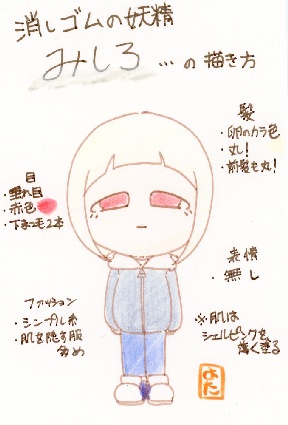 消しゴムの妖精
みしろ…の描き方
髪
・卵のカラ色
・丸!
・前髪も丸!
目
・垂れ目
・赤色
・下まつ毛2本
表情
・無し
ファッション
・シンプル系
・肌を隠す服
多め
※肌は
シェルピンクを
薄く塗る
よた